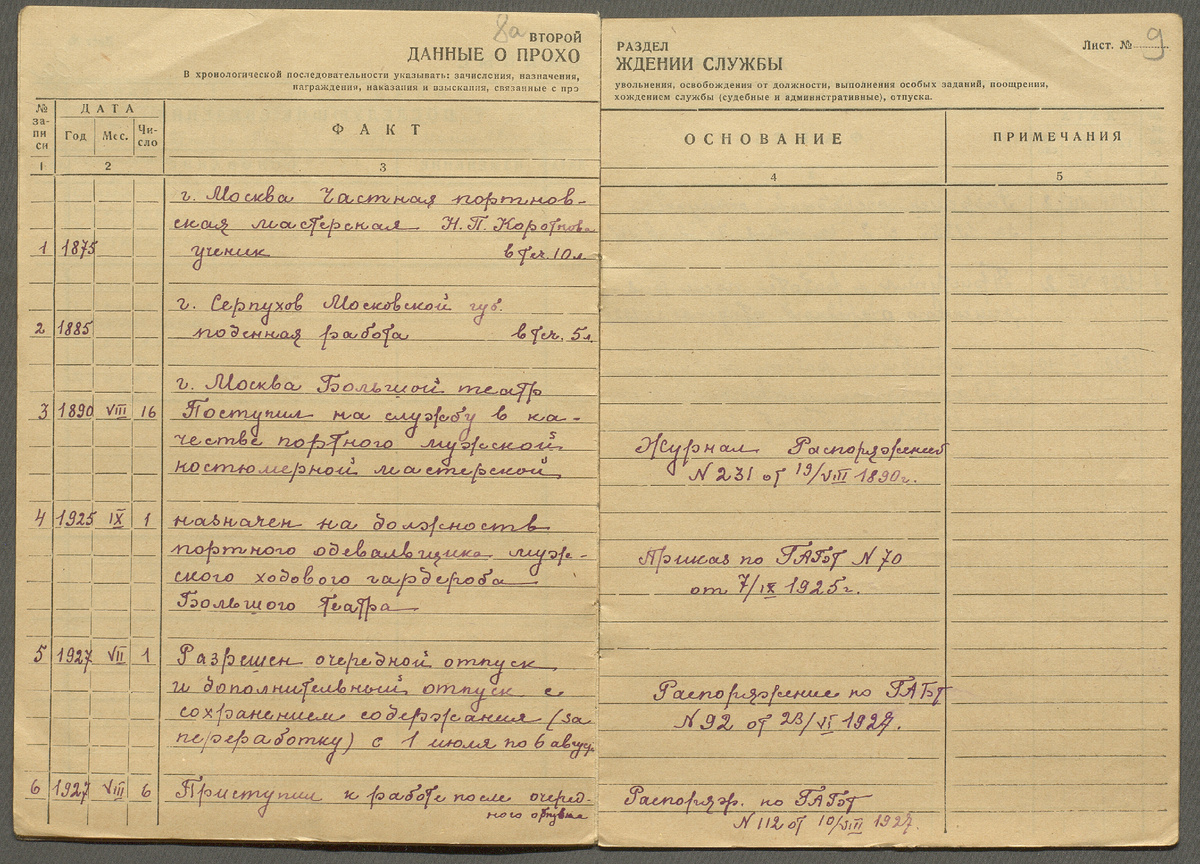 8а
ВТОРОЙ
ДАННЫЕ О ПРОХО
В хронологической последовательности указывать: зачисления, назначения,
награждения, наказания и взыскания, связанные с про
РАЗДЕЛ
Лист. № 9
ЖДЕНИИ СЛУЖБЫ
увольнения, освобождения от должности, выполнения особых заданий, поощрения,
хождением службы (судебные и административные), отпуска.
№ за-пи си
ДАТА
Год Мес. Чи-сло
ФАКТ
ОСНОВАНИЕ
ПРИМЕЧАНИЯ
1 2 3 4 5
г. Москва Частная портнов-
ская мастерская Н.П. Короткова
1 1875 ученик в теч. 10 л.
г. Серпухов Московской губ.
2 1885 поденная работа в теч. 5 л.
г. Москва Большой театр
3 1890 VIII 16 Поступил на службу в ка-
честве портного мужской
костюмерной мастерской
Журнал Распоряжений
N 231 от 19/VIII 1890 г.
4 1925 IX 1 назначен на должность
портного одевальщика муж-
ского ходового гардероба
Большого театра
Приказ по ГАБТ N 70
от 7/IX 1925 г.
5 1927 VII 1 Разрешен очередной отпуск
и дополнительный отпуск с
сохранением содержания (за
переработку) с 1 июля по 6 авгус.
Распоряжение по ГАБТ
N 92 от 23/VI 1927.
6 1927 VIII 6 Приступил к работе после очеред-
ного отпуска
Распоряж. по ГАБТ
N 112 от 10/VIII 1927.